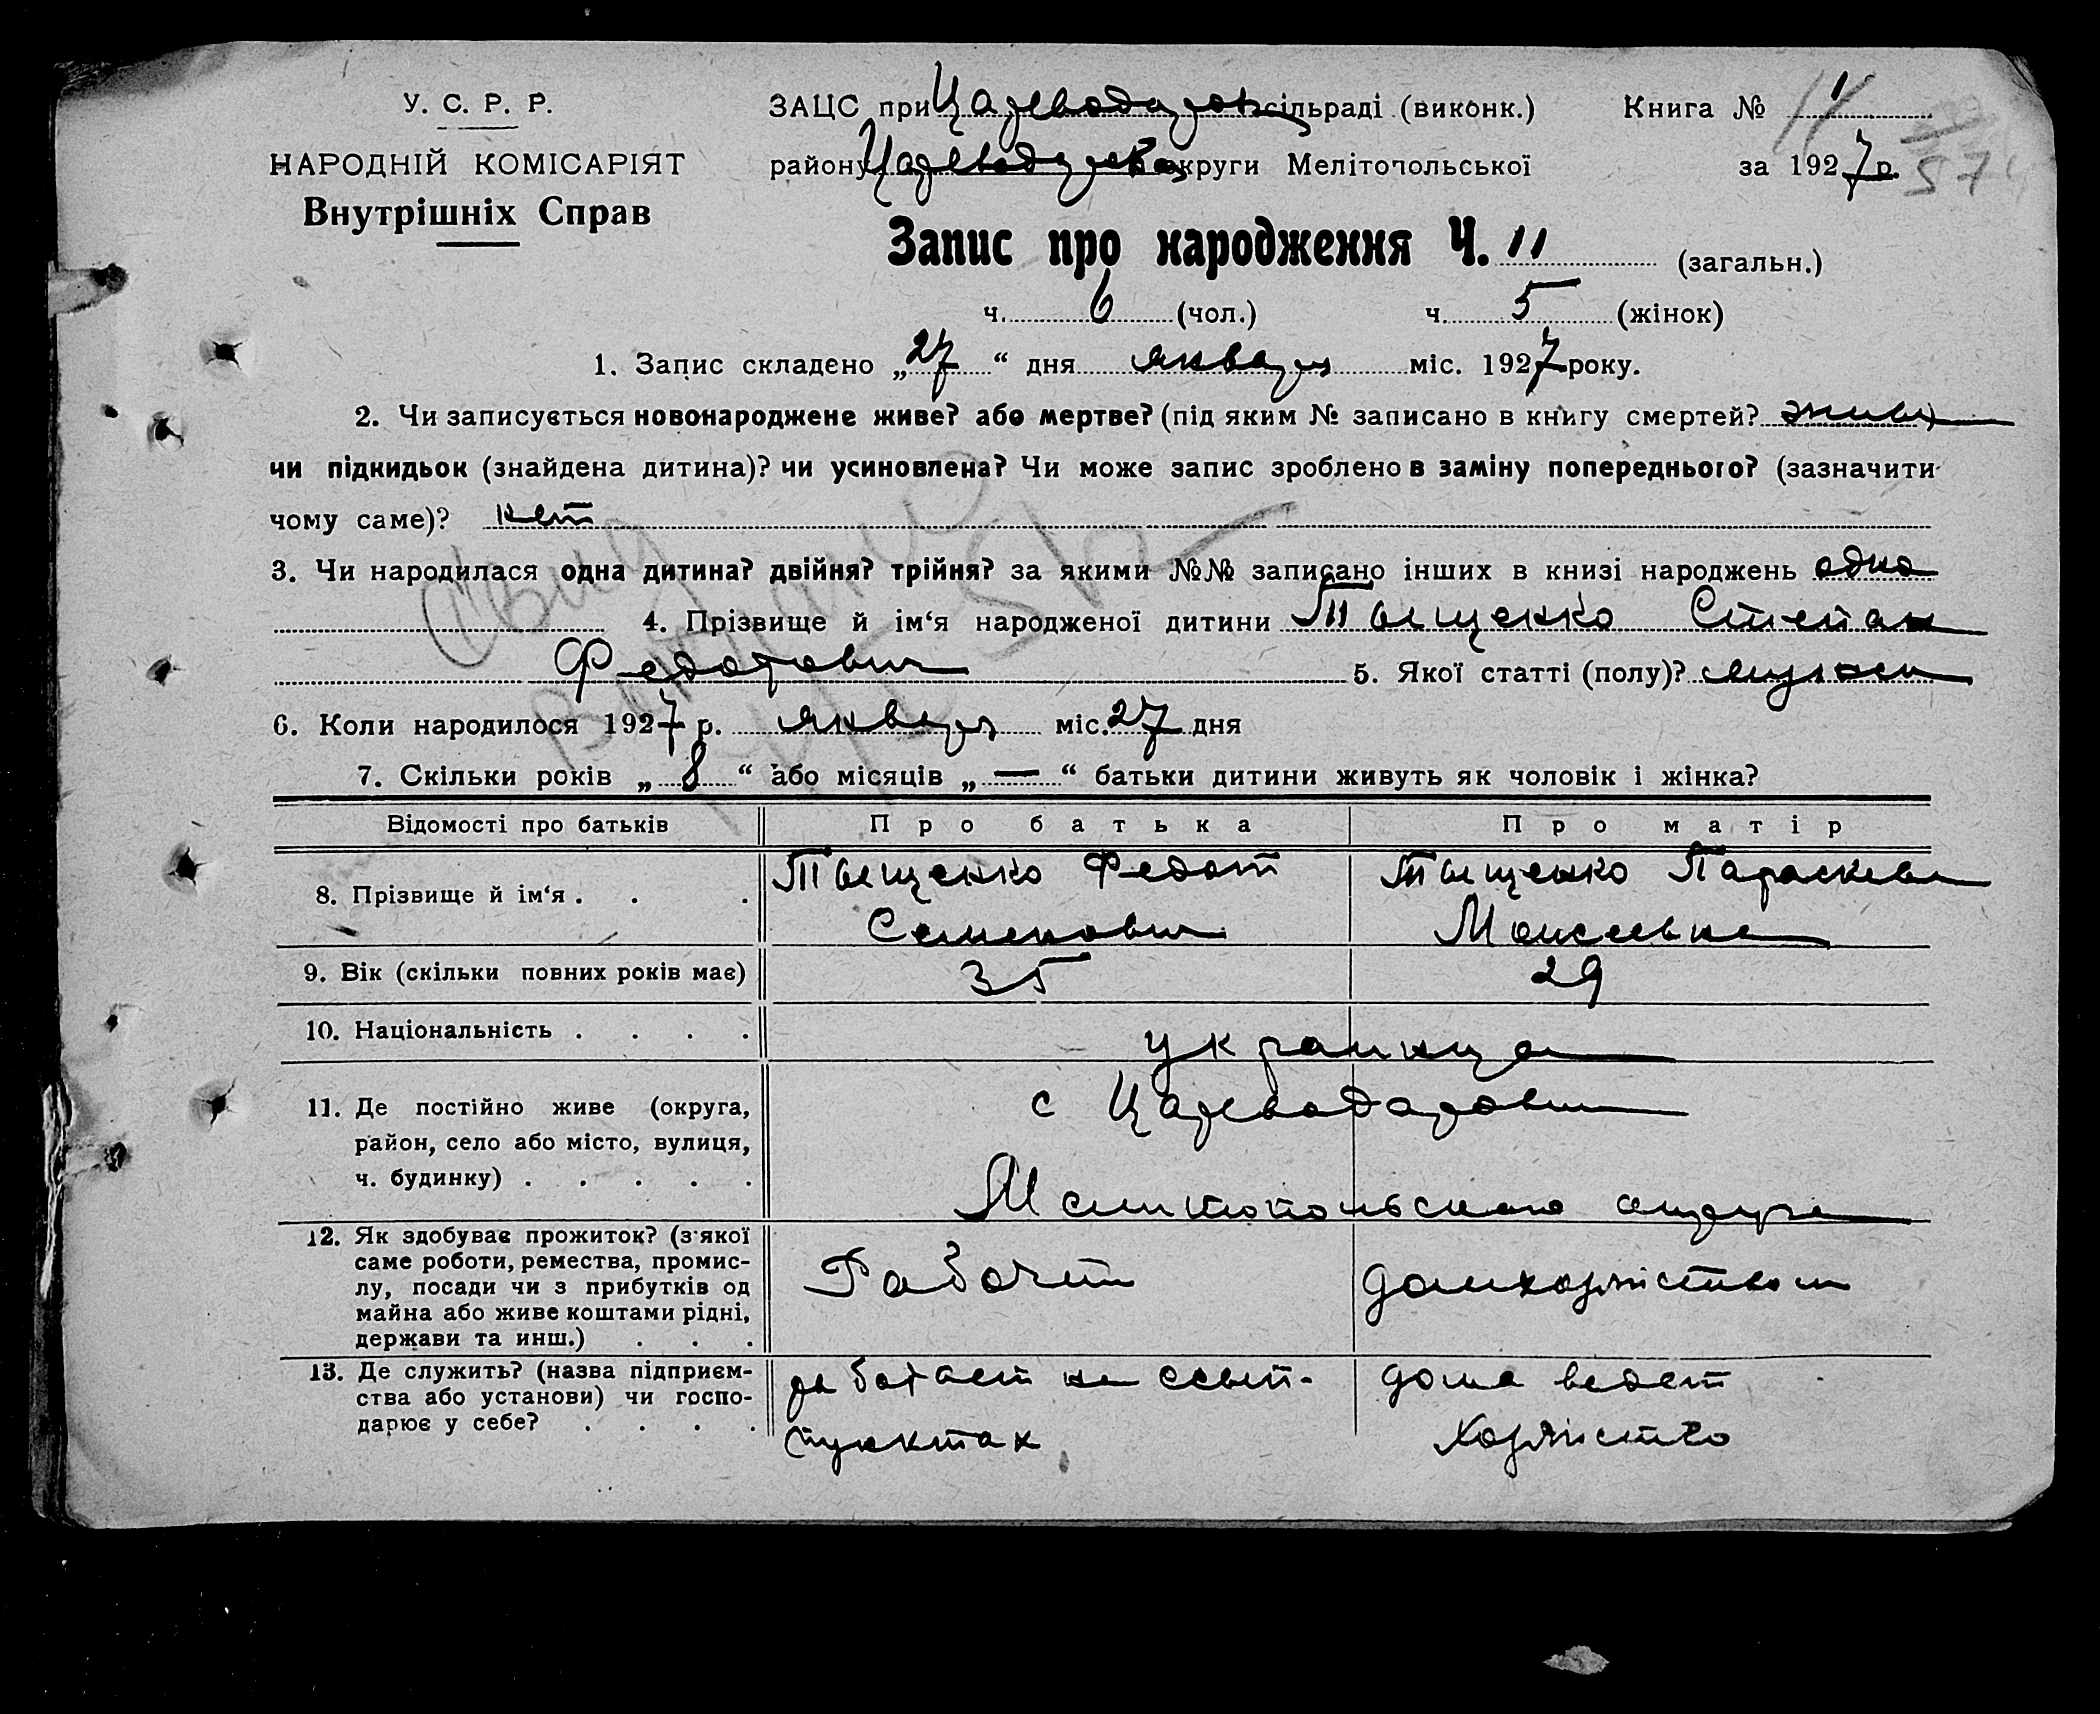 У. С. Р. Р.
НАРОДНІЙ КОМІСАРІЯТ
Внутрішніх Справ
ЗАЦС при Цареводаров сільраді (виконк.) Книга № 1
району Цареводаров округи Мелітопольської за 1927 р.
574
Запис про народження Ч. 11 (загальн.)
ч. 6 (чол.) ч. 5 (жінок)
1. Запис складено „27“ дня января міс. 1927 року.
2. Чи записується новонароджене живе? або мертве? (під яким № записано в книгу смертей? живы
чи підкидьок (знайдена дитина)? чи усиновлена? Чи може запис зроблено в заміну попереднього? (зазначити
чому саме)? нет
3. Чи народилася одна дитина? двійня? трійня? за якими №№ записано інших в книзі народжень одна
4. Прізвище й ім‘я народженої дитини Тыщенко Степан
Федотович 5. Якої статті (полу)? мужск
6. Коли народилося 1927 р. января міс. 27 дня
7. Скільки років „8“ або місяців „—“ батьки дитини живуть як чоловік і жінка?
Відомості про батьків Про батька Про матір
8. Прізвище й ім‘я . . . Тыщенко Федот Тыщенко Параскева
Семенович Моисеевна
9. Вік (скільки повних років має) 35 29
10. Національність . . . . украинца
11. Де постійно живе (округа, с Цареводаровки
район, село або місто, вулиця,
ч. будинку) . . . . . Мелитопольского округа
12. Як здобуває прожиток? (з‘якої
саме роботи, ремества, промис-
лу, посади чи з прибутків од Рабочий домхозяйством
майна або живе коштами рідні,
держави та инш.) . . .
13. Де служить? (назва підприєм- работает на ссып- дома ведет
ства або установи) чи госпо-
дарює у себе? . . . . пунктах хозяйство